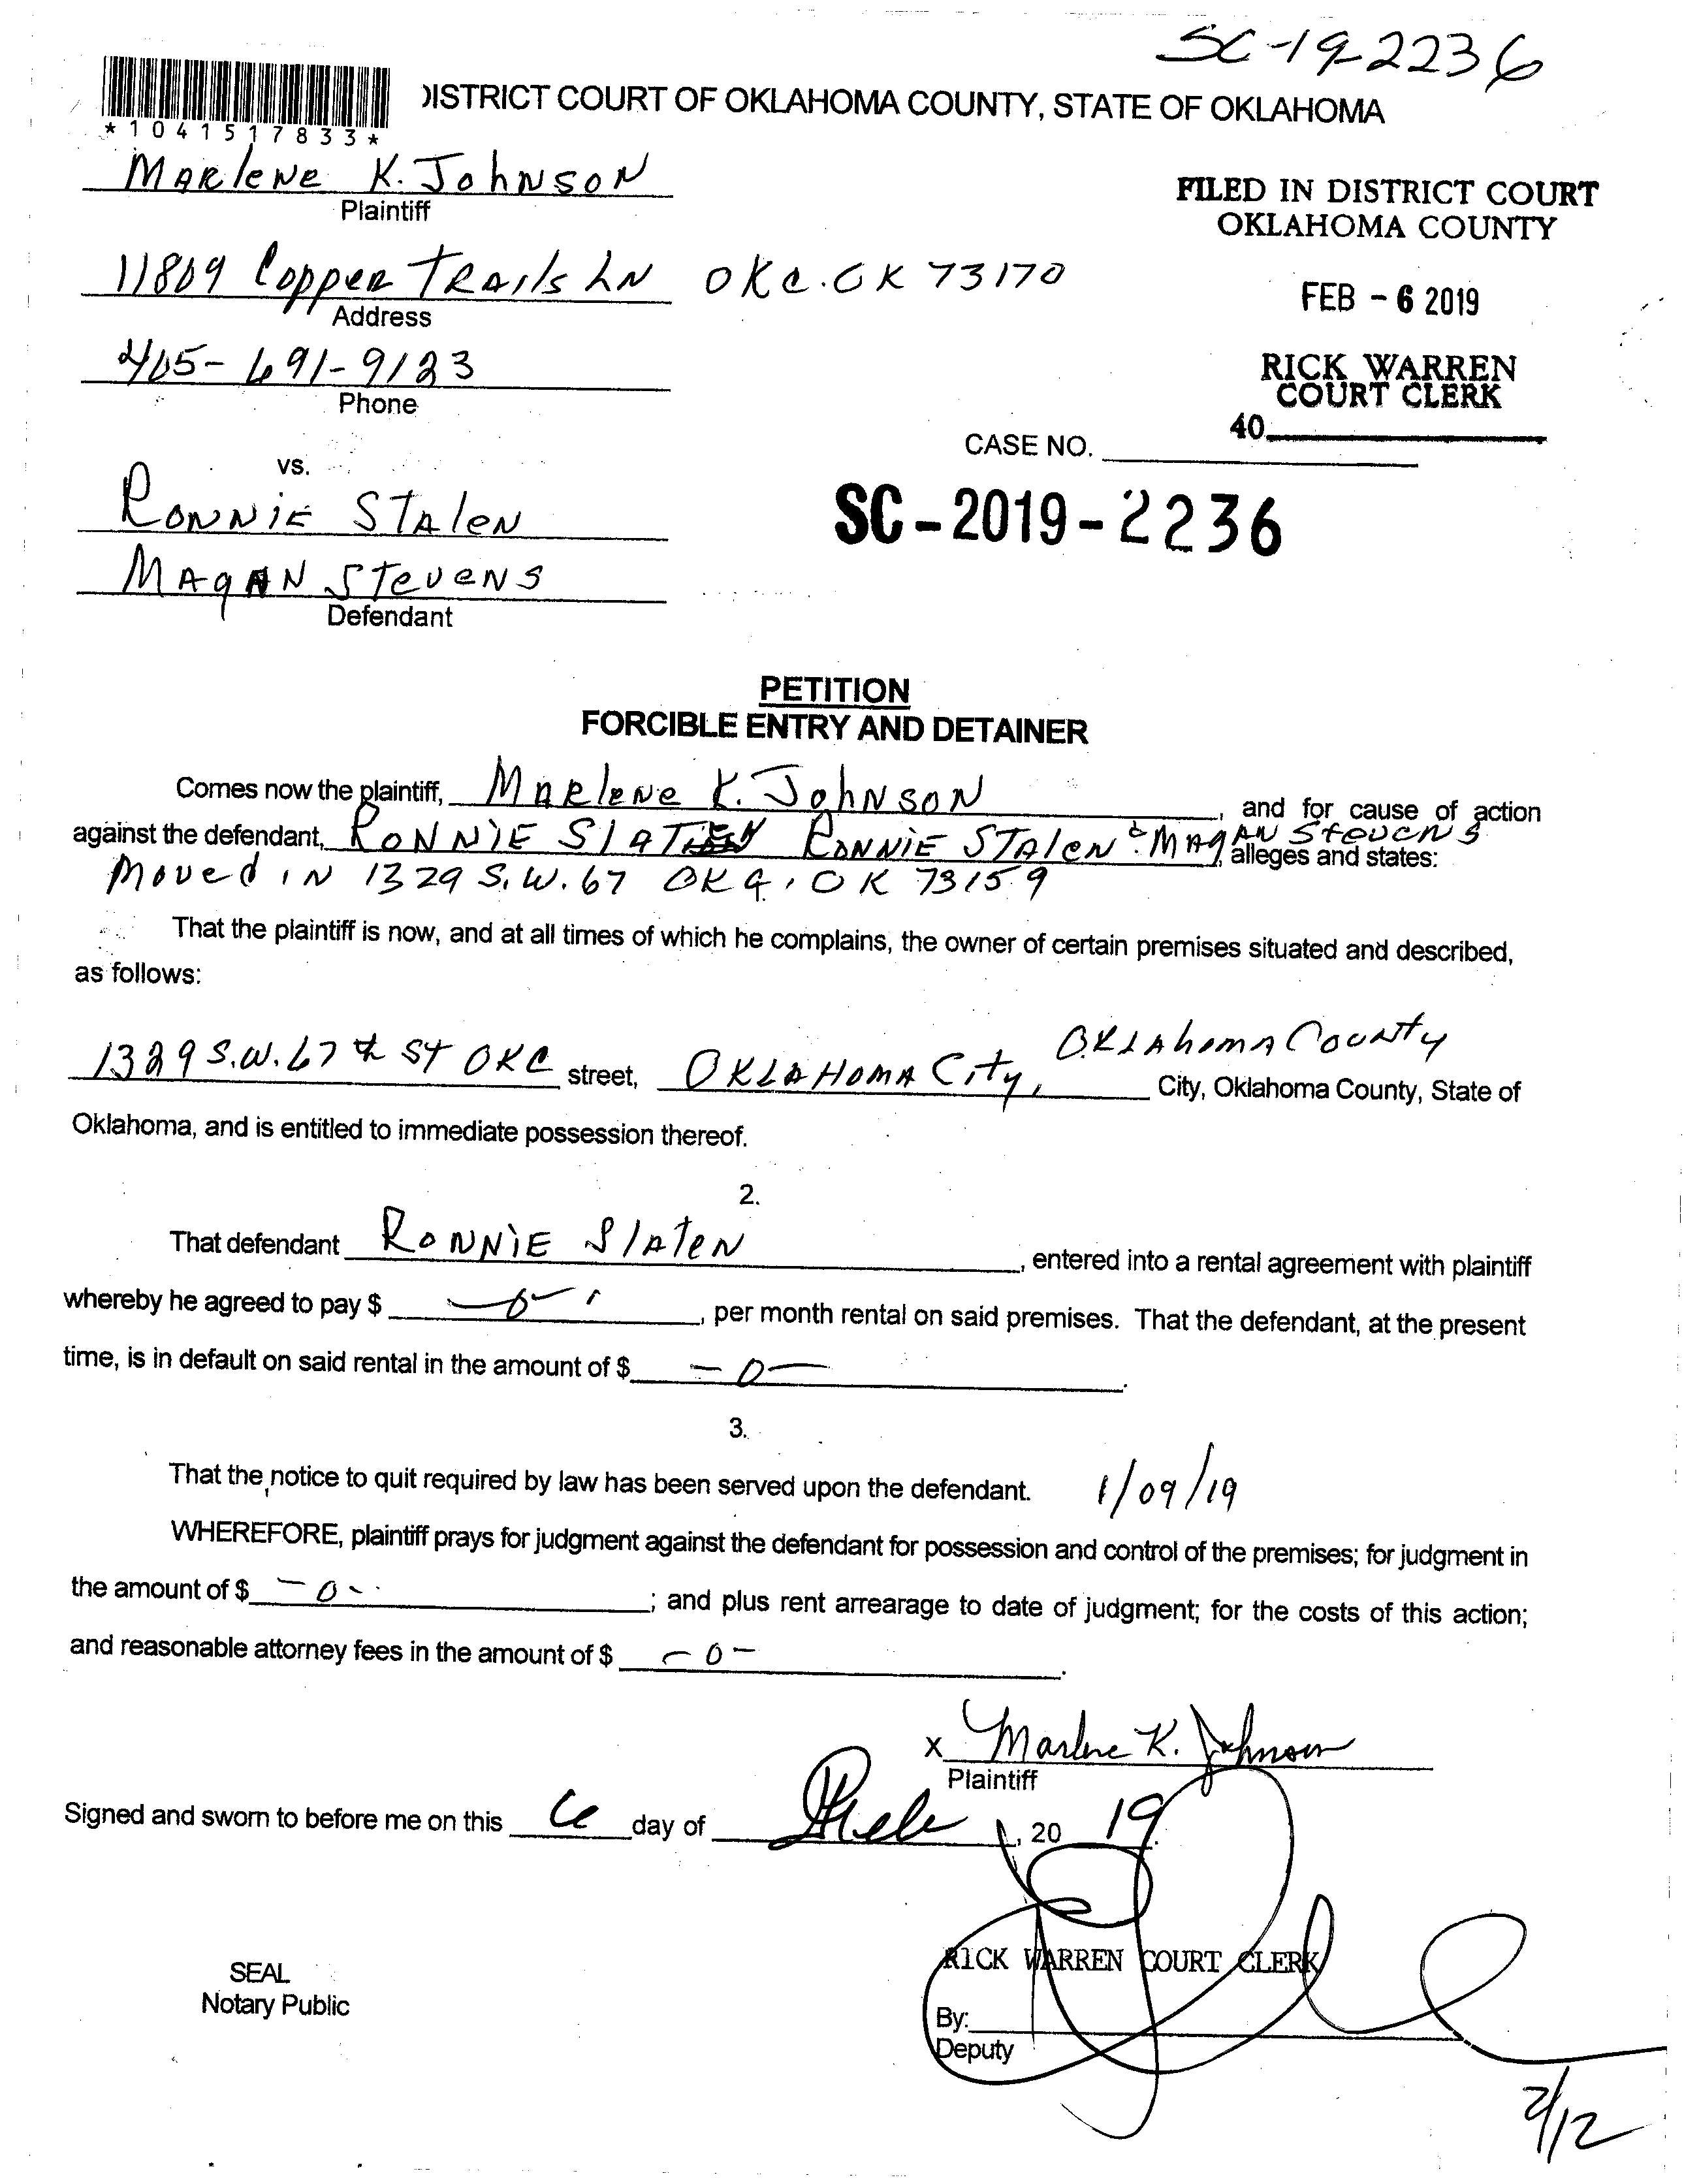 SC-19-2236
*1041517833*
DISTRICT COURT OF OKLAHOMA COUNTY, STATE OF OKLAHOMA
Marlene K. Johnson
Plaintiff
FILED IN DISTRICT COURT
OKLAHOMA COUNTY
11809 Copper Trails LN OKC. OK 73170
Address
FEB - 6 2019
405-691-9123
Phone
RICK WARREN
COURT CLERK
40
CASE NO.
vs.
Ronnie Stalen
SC-2019-2236
Magan Stevens
Defendant
PETITION
FORCIBLE ENTRY AND DETAINER
Comes now the plaintiff, Marlene K. Johnson, and for cause of action
against the defendant, Ronnie Ronnie Stalen & Magan Stevens alleges and states:
Moved in 1329 S.W. 67 OKC, OK 73159
That the plaintiff is now, and at all times of which he complains, the owner of certain premises situated and described,
as follows:
1329 S.W. 67th St OKC street, Oklahoma City, Oklahoma County City, Oklahoma County, State of
Oklahoma, and is entitled to immediate possession thereof.
2.
That defendant Ronnie Slaten, entered into a rental agreement with plaintiff
whereby he agreed to pay $ -0-, per month rental on said premises. That the defendant, at the present
time, is in default on said rental in the amount of $ -0-.
3.
That the notice to quit required by law has been served upon the defendant. 1/09/19
WHEREFORE, plaintiff prays for judgment against the defendant for possession and control of the premises; for judgment in
the amount of $ -0-; and plus rent arrearage to date of judgment; for the costs of this action;
and reasonable attorney fees in the amount of $ -0-.
x Marlene K. Johnson
Plaintiff
Signed and sworn to before me on this 6 day of Feb, 2019.
RICK WARREN COURT CLERK
SEAL
Notary Public
By:
Deputy
2/12